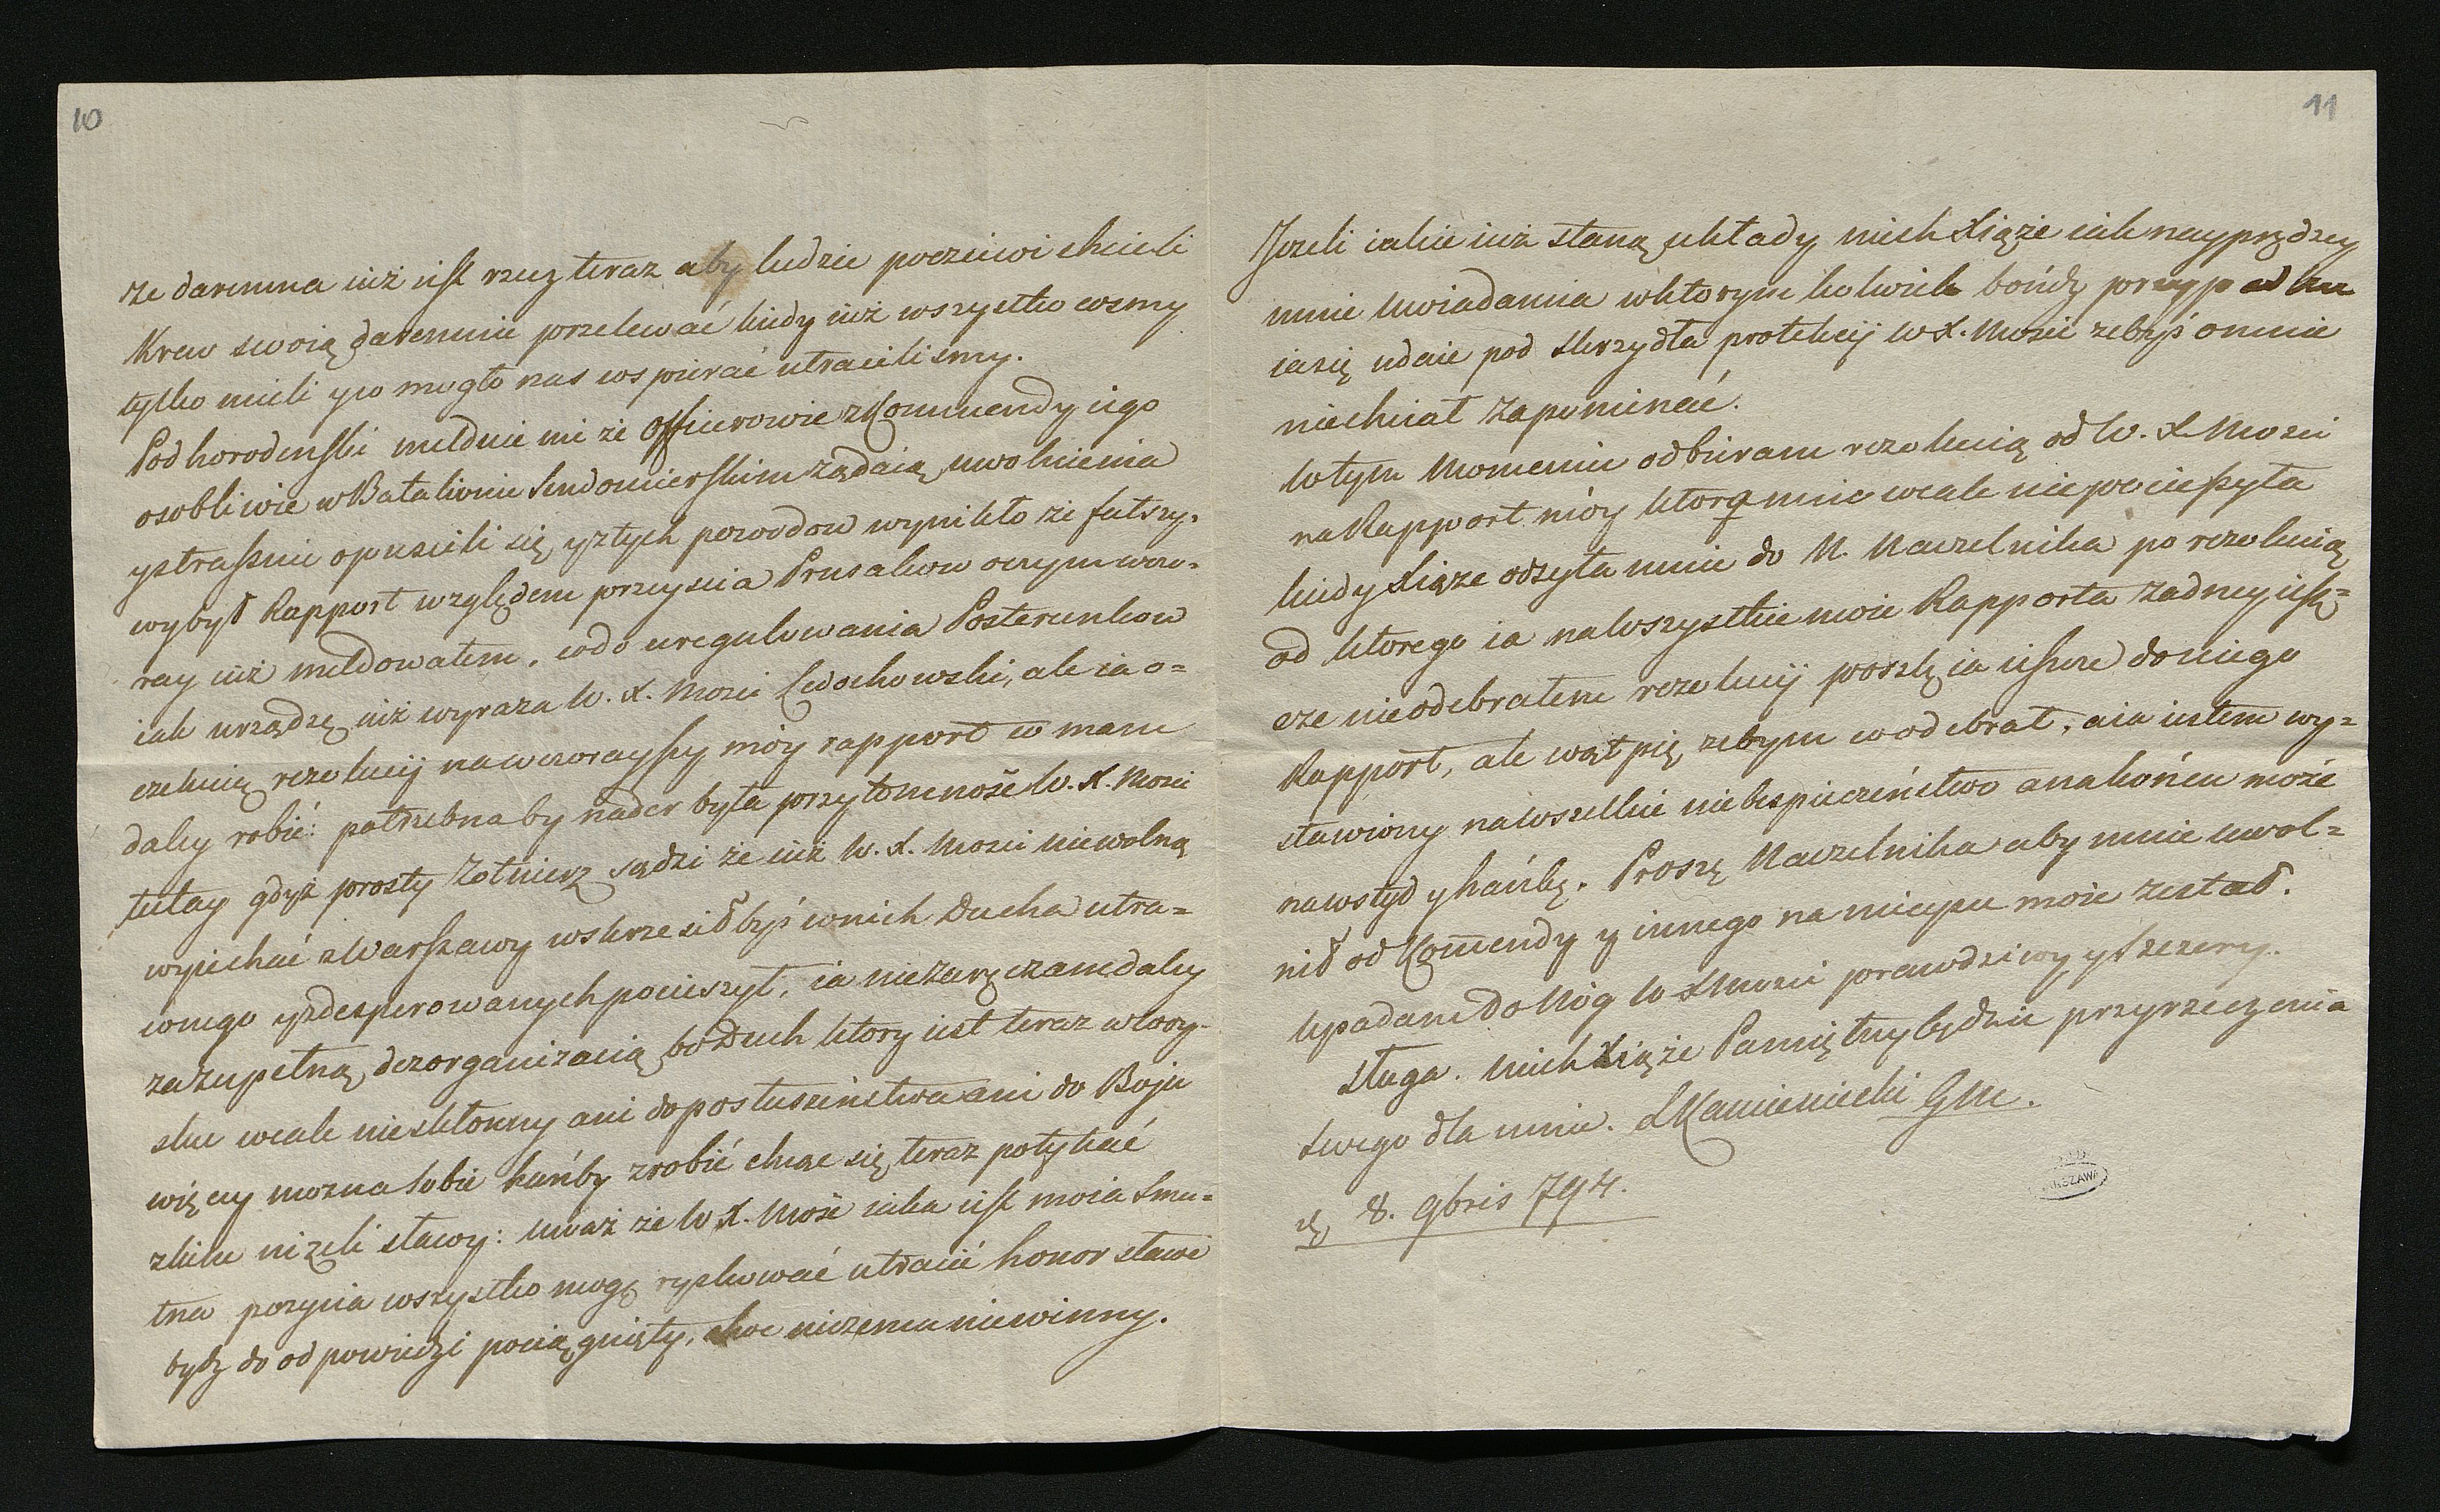 10
ze daremna iuż iest rzecz teraz aby ludzie poczciwi chcieli
Krew swoią daremnie przelewać kiedy iuż wszystko cosmy
tylko mieli y co mogło nas wspierać utracilismy.
Podhorodenski melduie mi że Officerowie z Kommendy iego
osobliwie w Batalionie Sendomierskim ządaią uwolnienia
y strasznie opuscili się, y z tych powodow wynikło że fałszy-
wy był Rapport względem przeyscia Prusakow o czym wczo-
ray iuż meldowałem, co do uregulowania Posterunkow
iak urządzę iuż wyraza W. X. Mosci Ledochowski, ale ia o=
czekuię rezolucij na wczorayszy móy rapport co mam
daley robić: potrzebna by nader była przytomność W. X. Mosci
tutay gdyż prosty Zołnierz sądzi że iuż W. X. Mosci niewolną
wyiechać z Warszawy wskrzesiłbyś w nich Ducha utra=
conego y zdesperowanych pocieszył, ia nie zaręczam daley
za zupełną dezorganizacią bo Duch ktory iest teraz w woy-
sku wcale niesklonny ani do posłuszeństwa ani do Boju
więcey mozna sobie hańby zrobić chcąc się teraz potykać
z kilku niżeli sławy: uważ że W X. Mość iaka iest moia Smu=
tna pozycia wszystko mogę ryzkować utracić honor sławe
bydz do odpowiedzi pociągnięty, choc niczemu niewinny.
11
Jezeli iakie iuż staną układy niech Xiąże iak nayprędzey
mnie uwiadamia w ktorym kolwiek bońdz przypadku
ia się udaie pod skrzydła protekcij W X. Mosci zebyś o mnie
niechciał zapominać.
W tym Momencie odbieram rezolucią od W. X Mosci
na Rapport móy ktorą mnie wcale nie pocieszyła
kiedy Xiąze odsyła mnie do N. Naczelnika po rezolucią
od ktorego ia na wszystkie moie Rapporta zadney iesz=
cze nieodebrałem rezolucij poszlę ia ieszcze do niego
Rapport, ale wątpię zebym co odebrał, a ia iestem wy=
stawiony na wszelkie niebespieczeństwo a nakońcu może
na wstyd y hańbę. Proszę Naczelnika aby mnie uwol=
nił od Kom̄endy y innego na mieysce moie zesłał.
Upadam do Nóg W X Mosci prawdziwy y szczery
Sługa. Niech Xiąże Pamiętny będzie przyrzeczenia
swego dla mnie. LKamieniecki GM.
d. 8. 9bris 794.